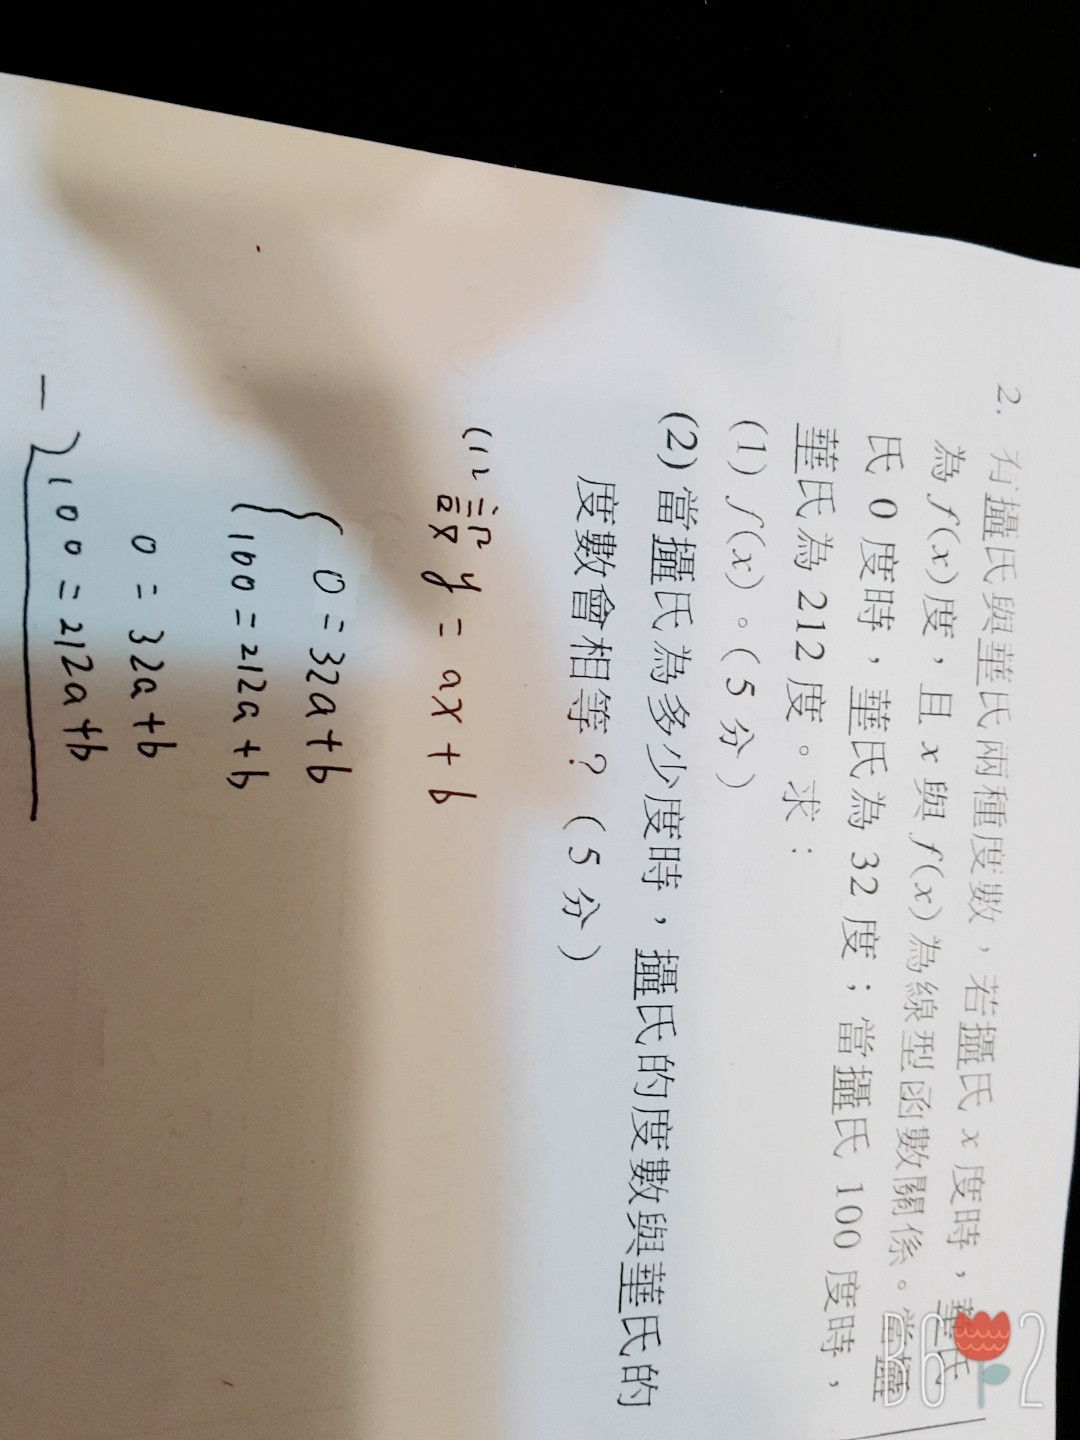 2. 有攝氏與華氏兩種度數，若攝氏 x 度時，華氏
為 f(x)度，且 x 與 f(x)為線型函數關係。當攝
氏 0 度時，華氏為 32 度；當攝氏 100 度時，
華氏為 212 度。求：
(1) f(x)。(5 分)
(2) 當攝氏為多少度時，攝氏的度數與華氏的
度數會相等？(5 分)
(1) 設 y = ax + b
0 = 32a + b
100 = 212a + b
0 = 32a + b
-) 100 = 212a + b
B612